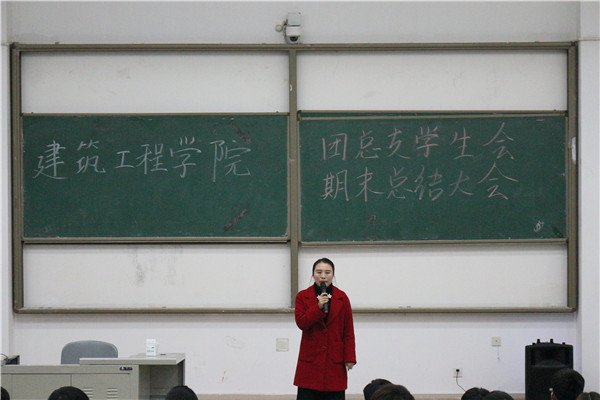 建筑工程学院
团总支学生会
期末总结大会